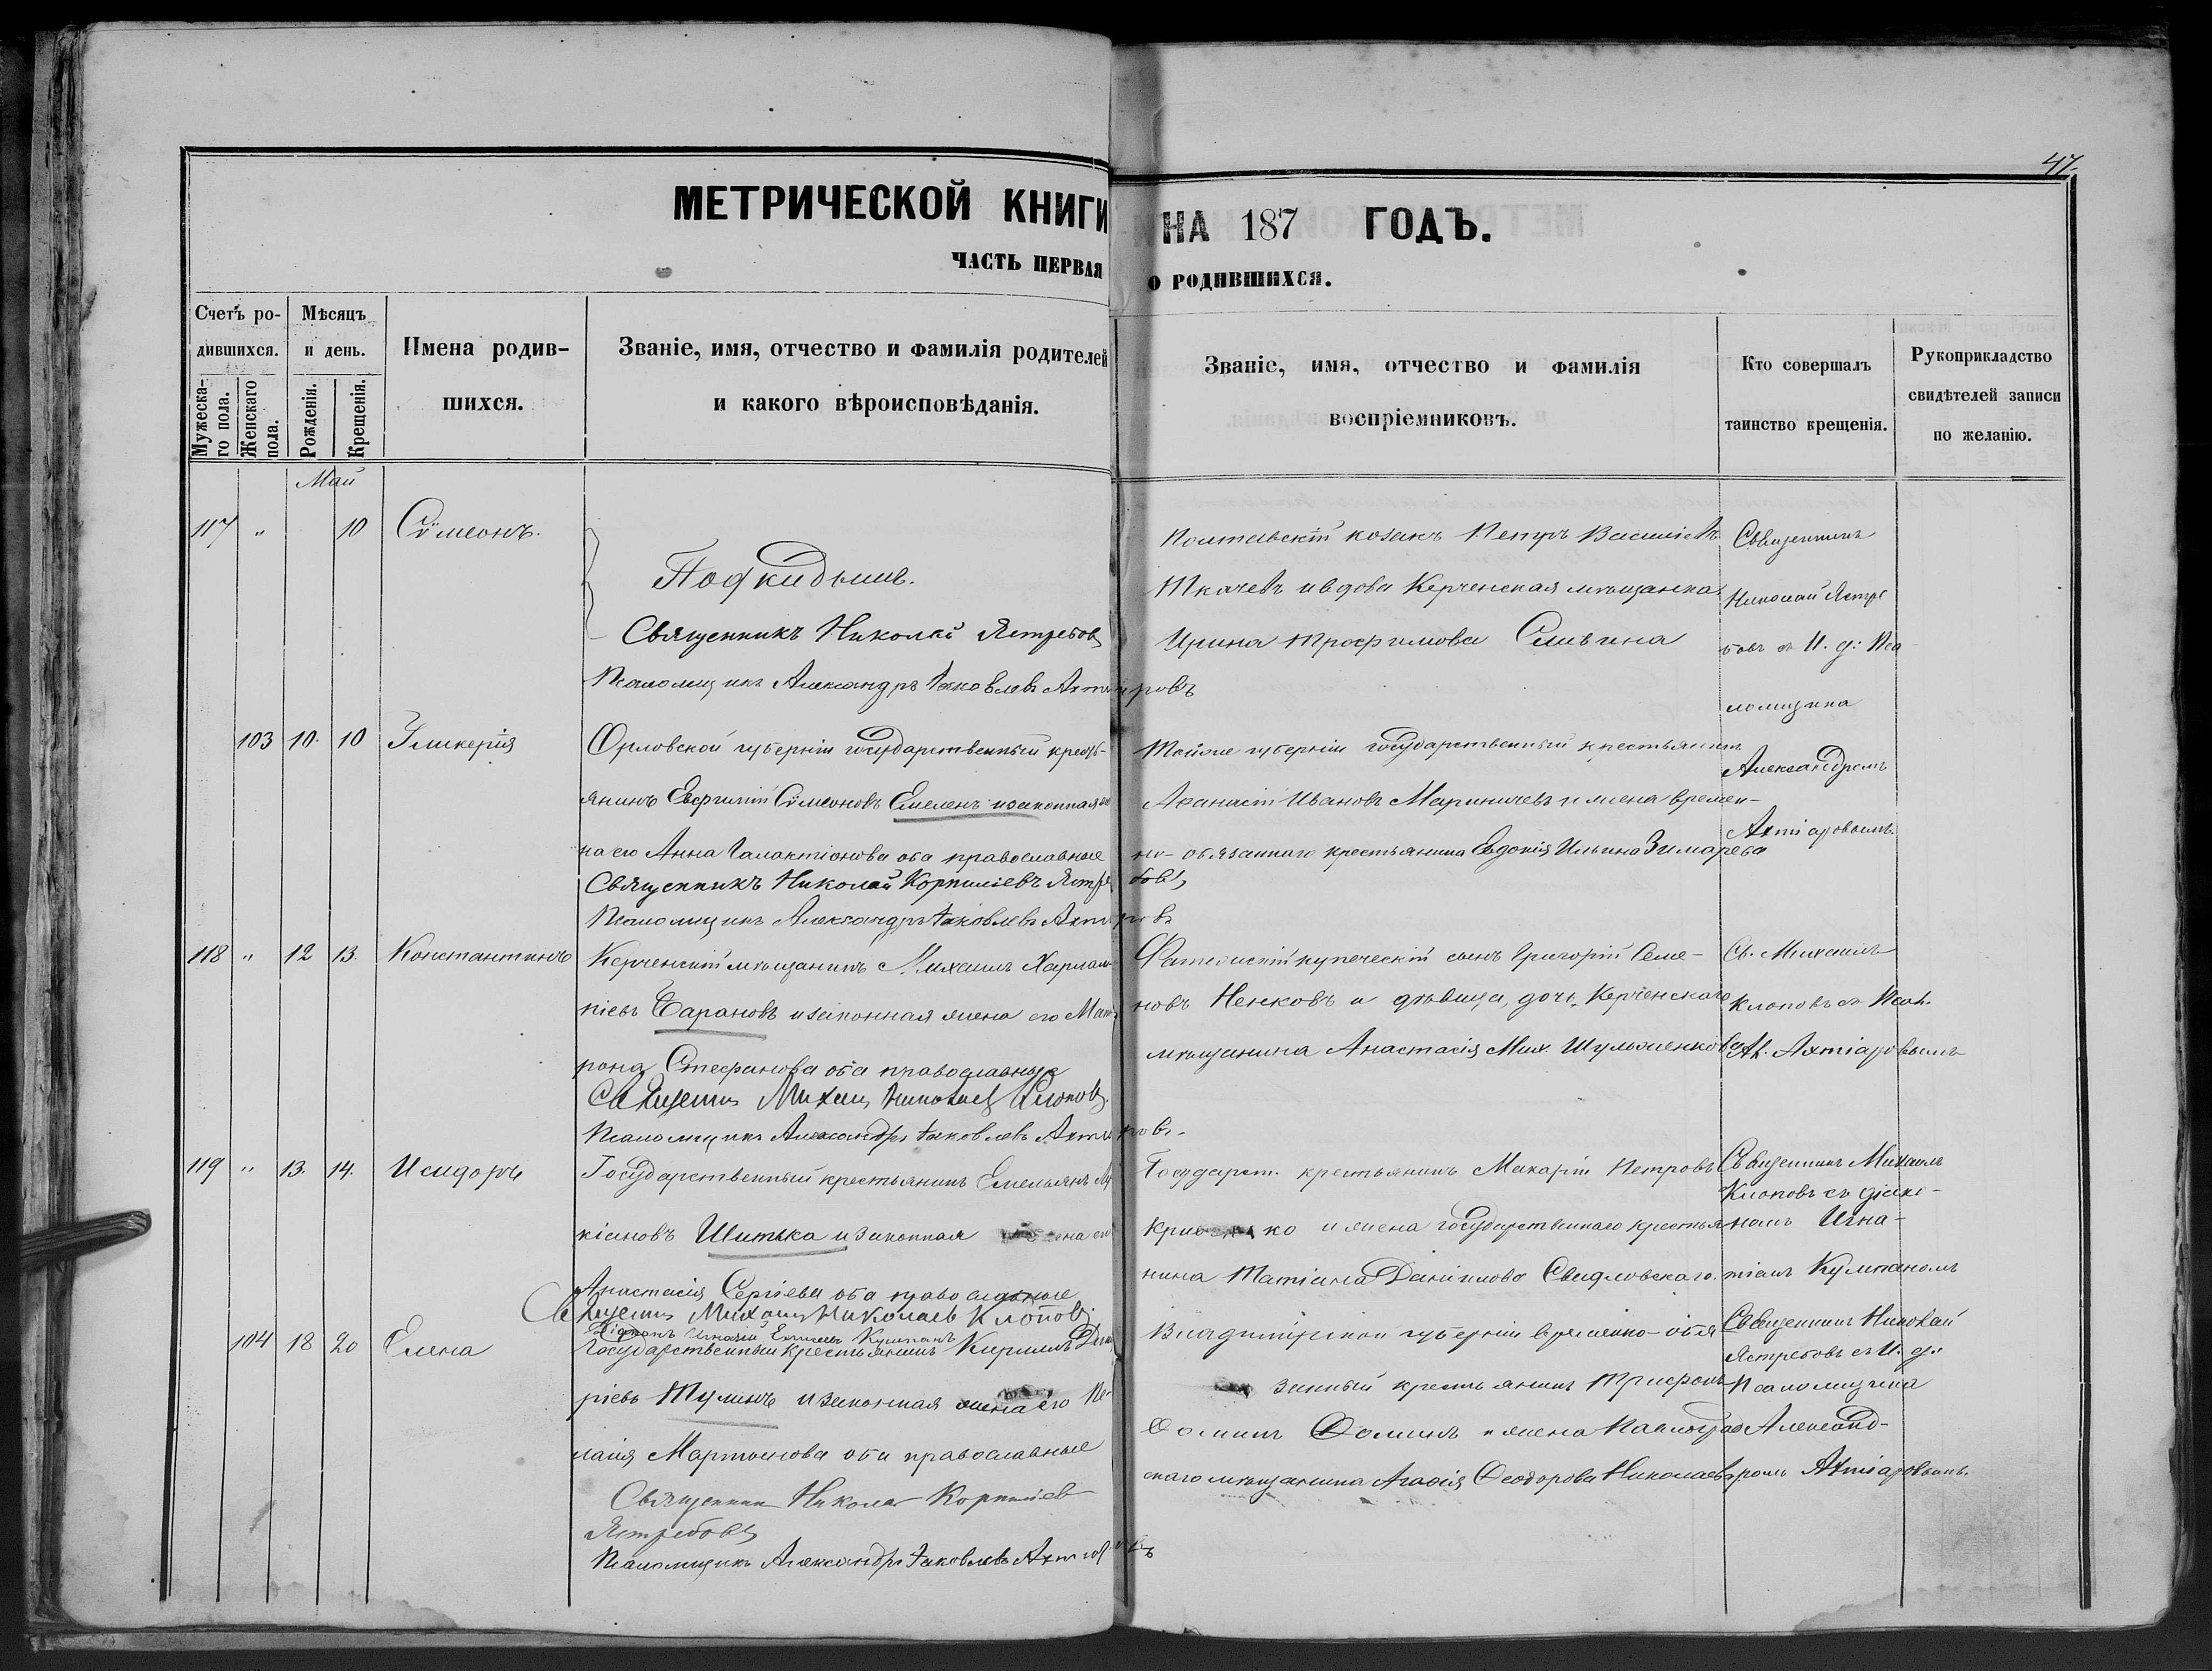 47.
МЕТРИЧЕСКОЙ КНИГИ НА 187 ГОДЪ.
ЧАСТЬ ПЕРВАЯ О РОДИВШИХСЯ.
Счетъ ро-
дившихся.
Мужеска-
го пола.
Женскаго
пола.
Мѣсяцъ
и день.
Рожденія.
Крещенія.
Имена родив-
шихся.
Званіе, имя, отчество и фамилія родителей
и какого вѣроисповѣданія.
Званіе, имя, отчество и фамилія
воспріемниковъ.
Кто совершалъ
таинство крещенія.
Рукоприкладство
свидѣтелей записи
по желанію.
Май
117 " 10 Сѵмеонъ.
Подкидышъ.
Священникъ Николай Ястребовъ
Псаломщикъ Александръ Яковлевъ Ахтіаровъ
Полтавскій козакъ Петръ Василіевъ
Ткачевъ и вдова Керченская мѣщанка
Ирина Трофимова Сливина
Священникъ
Николай Ястре
бовъ съ И. д: Пса
ломщика
103 10. 10 Гликерія
Орловской губерніи государственный кресть-
янинъ Евфимій Сѵмеоновъ Емеленъ и законная же
на его Анна Галактіонова оба православные
Священникъ Николай Корниліевъ Ястребовъ
Псаломщикъ Александръ Яковлевъ Ахтіаровъ
Тойже губерніи государственный крестьянинъ
Аѳанасій Ивановъ Мариничевъ и жена времен-
но-обязаннаго крестьянина Евдокія Ильина Зимарева
Александромъ
Ахтіаровымъ.
118 " 12 13. Константинъ
Керченскій мѣщанинъ Михаилъ Харлам-
піевъ Барановъ и законная жена его Мат
рона Стефанова оба православные
Священникъ Михаилъ Николаевъ Клоповъ.
Псаломщикъ Александръ Яковлевъ Ахтіаровъ.
купеческій сынъ Григорій Семе-
новъ Ненковъ и дѣвица, дочь Керченскаго
мѣщанина Анастасія Мих. Шульженкова
Св. Михаилъ
Клоповъ съ Псал.
Ал. Ахтіаровымъ
119 " 13. 14. Исидоръ
Государственный крестьянинъ Емельянъ Лу
кіановъ Шитька и законная жена его
Анастасія Сергіева оба православные
Священникъ Михаилъ Николаевъ Клоповъ.
Діаконъ Игнатій Кулпанъ
Государст. крестьянинъ Макарій Петровъ
Кривенко и жена государственнаго крестья
нина Татіана Даніилова Свидловскаго.
Священникъ Михаилъ
Клоповъ съ діако-
номъ Игна-
тіемъ Кулпаномъ
104 18 20 Елена
Государственный крестьянинъ Кириллъ Дми
ріевъ Тулинъ и законная жена его Пе
лагія Мартынова оба православные
Священникъ Николай Корниліевъ
Ястребовъ
Псаломщикъ Александръ Яковлевъ Ахтіаровъ
Владимірской губерніи временно-обя
занный крестьянинъ Трифонъ
Ѳоминъ Ѳоминъ и жена Павлоград
скаго мѣщанина Агаѳія Ѳеодорова Николаева
Священникъ Николай
Ястребовъ съ И. д.
Псаломщика
Александ-
ромъ Ахтіаровымъ.